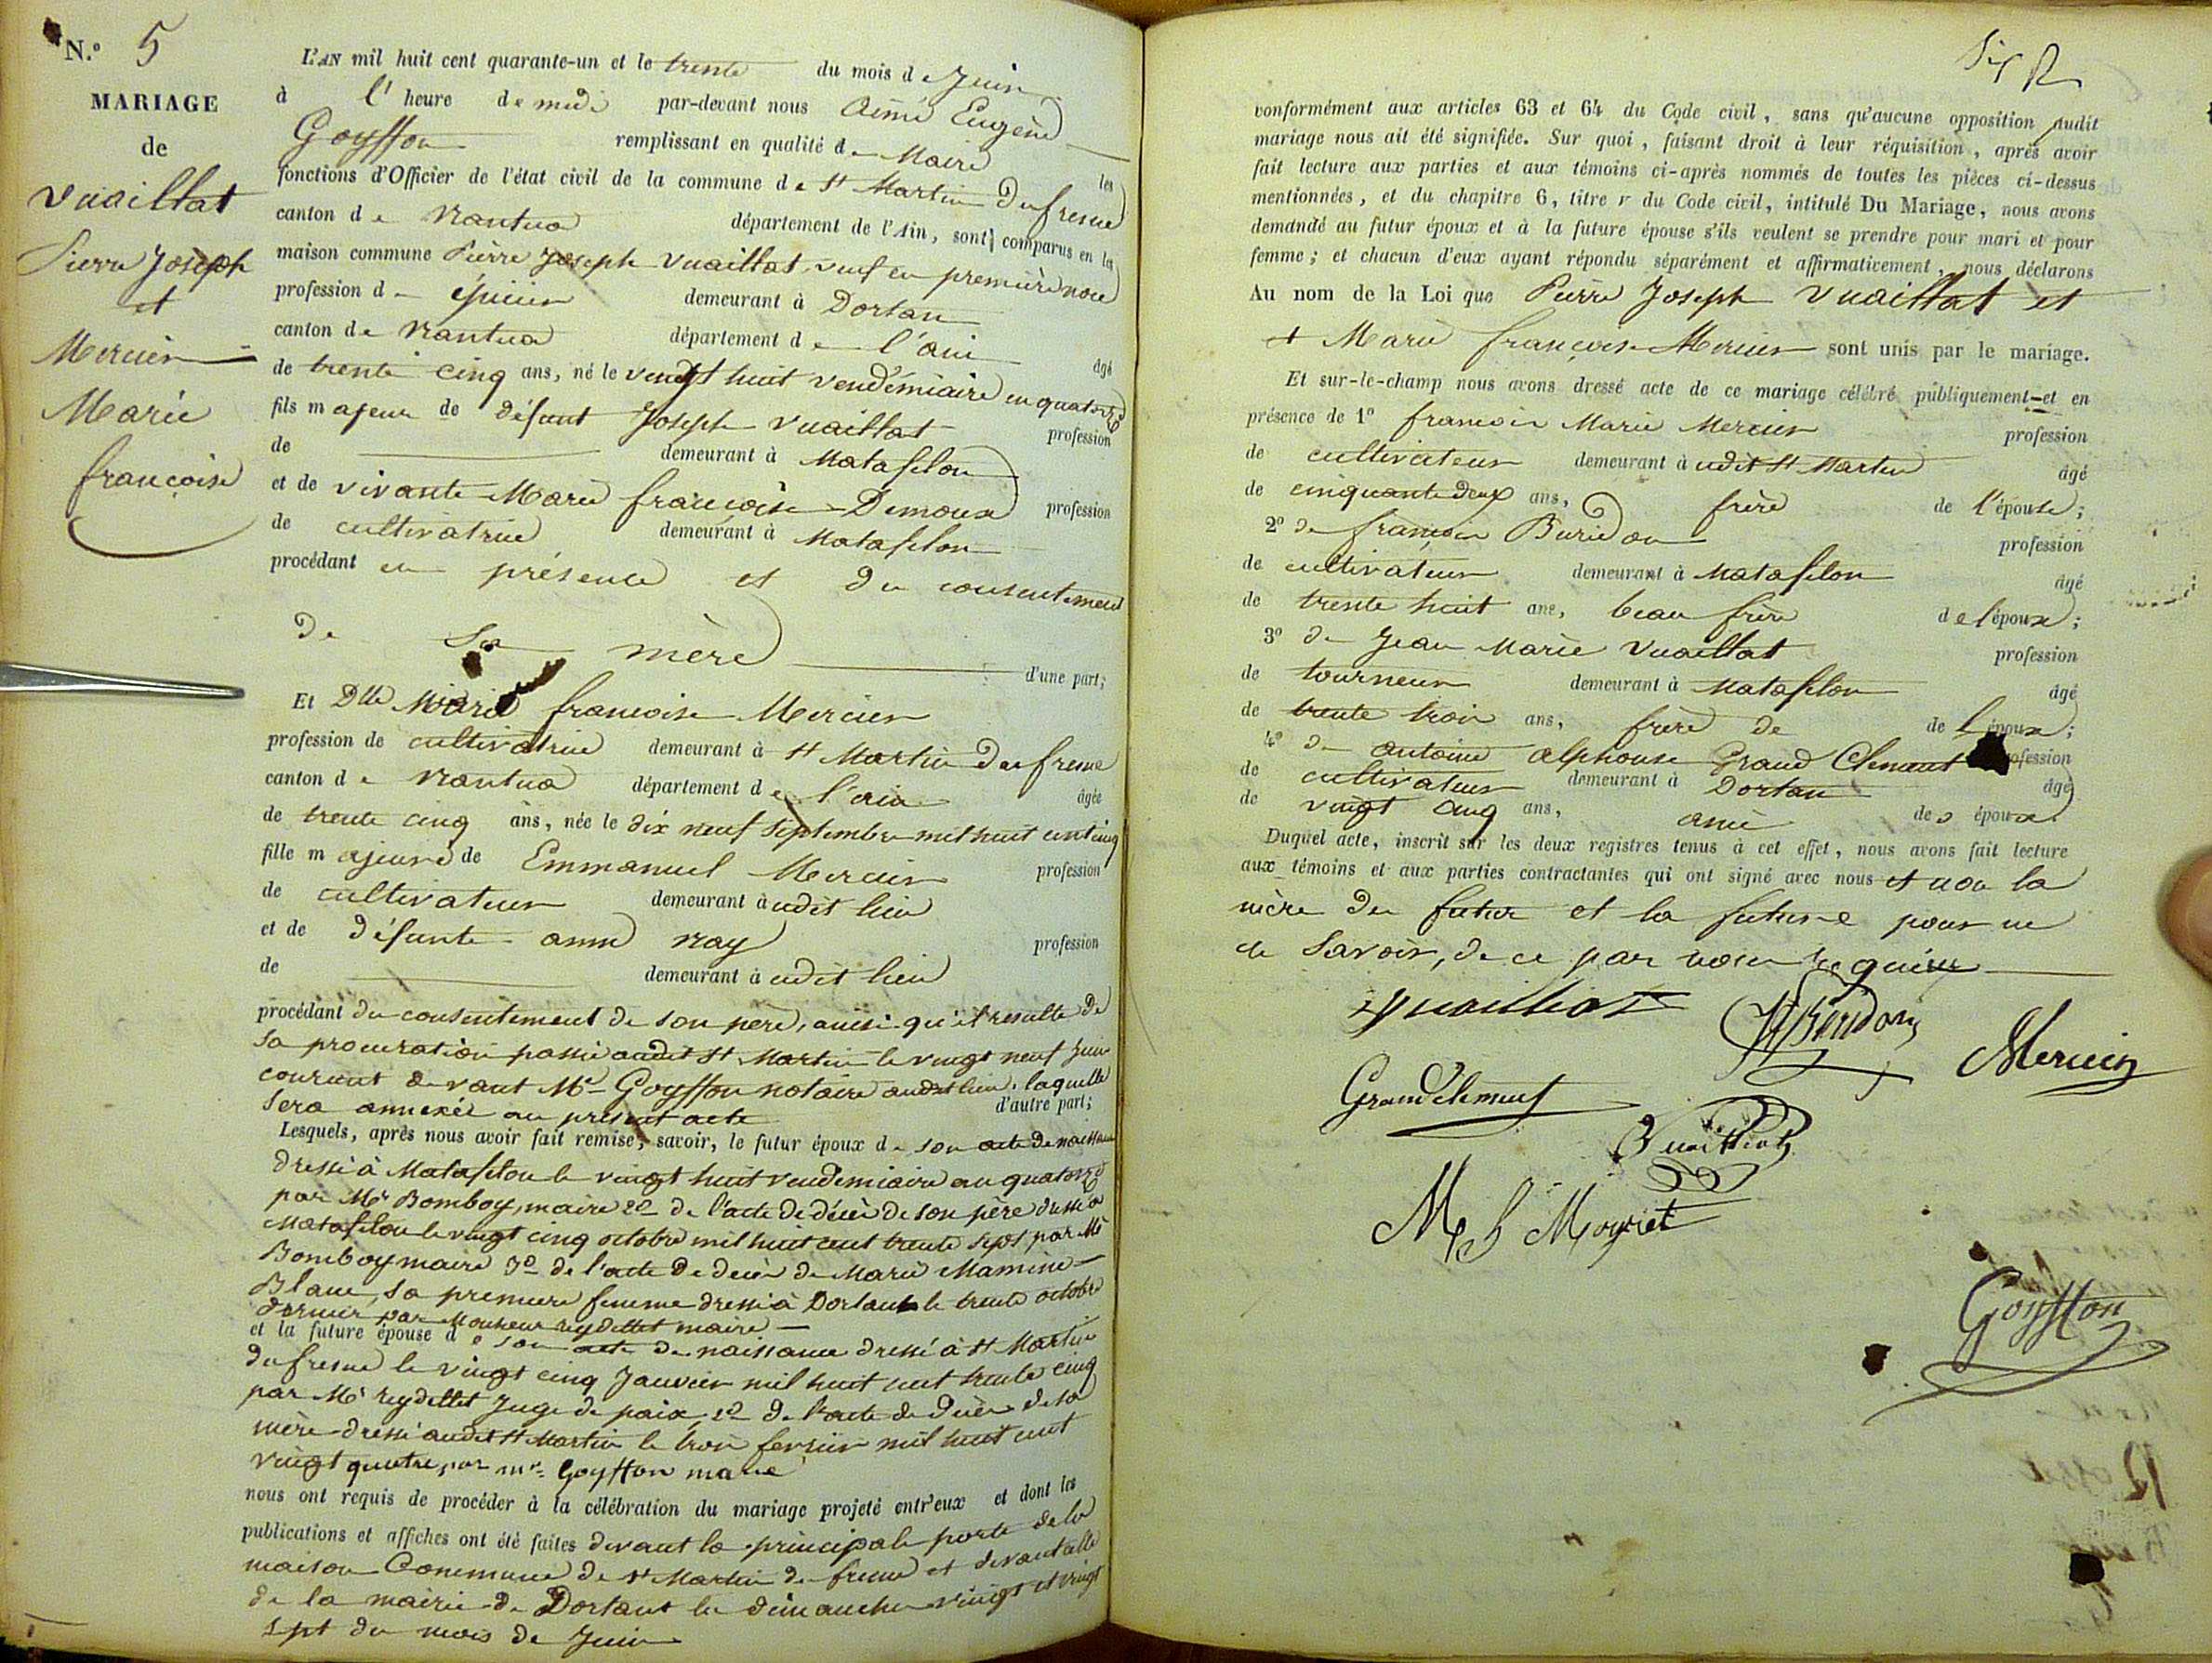 N.º 5
MARIAGE
de
Vuaillat
Pierre Joseph
et
Mercier
Marie
françoise
L'AN mil huit cent quarante-un et le trente du mois de Juin
à l'heure de midi par-devant nous Aimé Eugène
Goyffon remplissant en qualité de Maire les
fonctions d'Officier de l'état civil de la commune de St Martin Dufresne
canton de Nantua département de l'Ain, sont comparus en la
maison commune Pierre Joseph Vuaillat, veuf en première noce
profession d épicier demeurant à Dortan
canton de Nantua département de l'ain âgé
de trente cinq ans, né le vingt huit vendémiaire an quatorze
fils majeur de défunt Joseph Vuaillat profession
de demeurant à Matafelon
et de vivante Marie françoise Demoux profession
de cultivatrice demeurant à Matafelon
procédant en présence et du consentement
de sa mère d'une part;
Et Dlle Marie francoise Mercier
profession de cultivatrice demeurant à St Martin Dufresne
canton de Nantua département de l'ain âgée
de trente cinq ans, née le dix neuf septembre mil huit cent cinq
fille majeure de Emmanuel Mercier profession
de cultivateur demeurant à udit lieu
et de défunte anne Nay profession
de demeurant à udit lieu
procédant du consentement de son père, ainsi qu'il resulte de
sa procuration passée audit St Martin le vingt neuf Juin
courant devant Me Goyffon notaire audit lieu, laquelle
sera annexée au présent acte d'autre part;
Lesquels, après nous avoir fait remise, savoir, le futur époux de son acte de naissance
dressé à Matafelon le vingt huit vendemiaire an quatorze
par Mr Bomboy, maire 2º de l'acte de décès de son père dressé à
Matafelon le vingt cinq octobre mil huit cent trente sept par Mr
Bomboy maire 3º de l'acte de décès de Marie
Blanc, sa premiere femme dressé à Dortant le trente octobre
dernier par Monsieur reydellet maire
et la future épouse de son acte de naissance dressé à St Martin
du fresne le vingt cinq Janvier mil huit cent trente cinq
par Mr reydellet Juge de paix, 2º de l'acte de décès de sa
mère dressé audit St Martin le trois fevrier mil huit cent
vingt quatre, par mr. Goyffon maire
nous ont requis de procéder à la célébration du mariage projeté entr'eux et dont les
publications et affiches ont été faites devant la principale porte de la
maison Commune de St Martin du fresne et devant celle
de la mairie de Dortant les dimanches vingt et vingt
sept du mois de Juin
Six
conformément aux articles 63 et 64 du Code civil, sans qu'aucune opposition audit
mariage nous ait été signifiée. Sur quoi, faisant droit à leur réquisition, après avoir
fait lecture aux parties et aux témoins ci-après nommés de toutes les pièces ci-dessus
mentionnées, et du chapitre 6, titre v du Code civil, intitulé Du Mariage, nous avons
demandé au futur époux et à la future épouse s'ils veulent se prendre pour mari et pour
femme; et chacun d'eux ayant répondu séparément et affirmativement, nous déclarons
Au nom de la Loi que Pierre Joseph Vuaillat et
et Marie françoise Mercier sont unis par le mariage.
Et sur-le-champ nous avons dressé acte de ce mariage célébré publiquement et en
présence de 1º francois Marie Mercier profession
de cultivateur demeurant à udit St Martin âgé
de cinquante deux ans, frère de l'épouse;
2º de françois Buridon profession
de cultivateur demeurant à Matafelon âgé
de trente huit ans, beau frère de l'époux;
3º de Jean Marie Vuaillat profession
de tourneur demeurant à Matafelon âgé
de trente trois ans, frère de de l'époux;
4º de antoine alphonse Grand Clement profession
de cultivateur demeurant à Dortan âgé
de vingt cinq ans, ami des époux.
Duquel acte, inscrit sur les deux registres tenus à cet effet, nous avons fait lecture
aux témoins et aux parties contractantes qui ont signé avec nous et non la
mère du futur et la future pour ne
le savoir, de ce par nous requises
Vuailliat
Buridon
Mercier
Grandclement
Vuailliat
Moyret
Goyffon